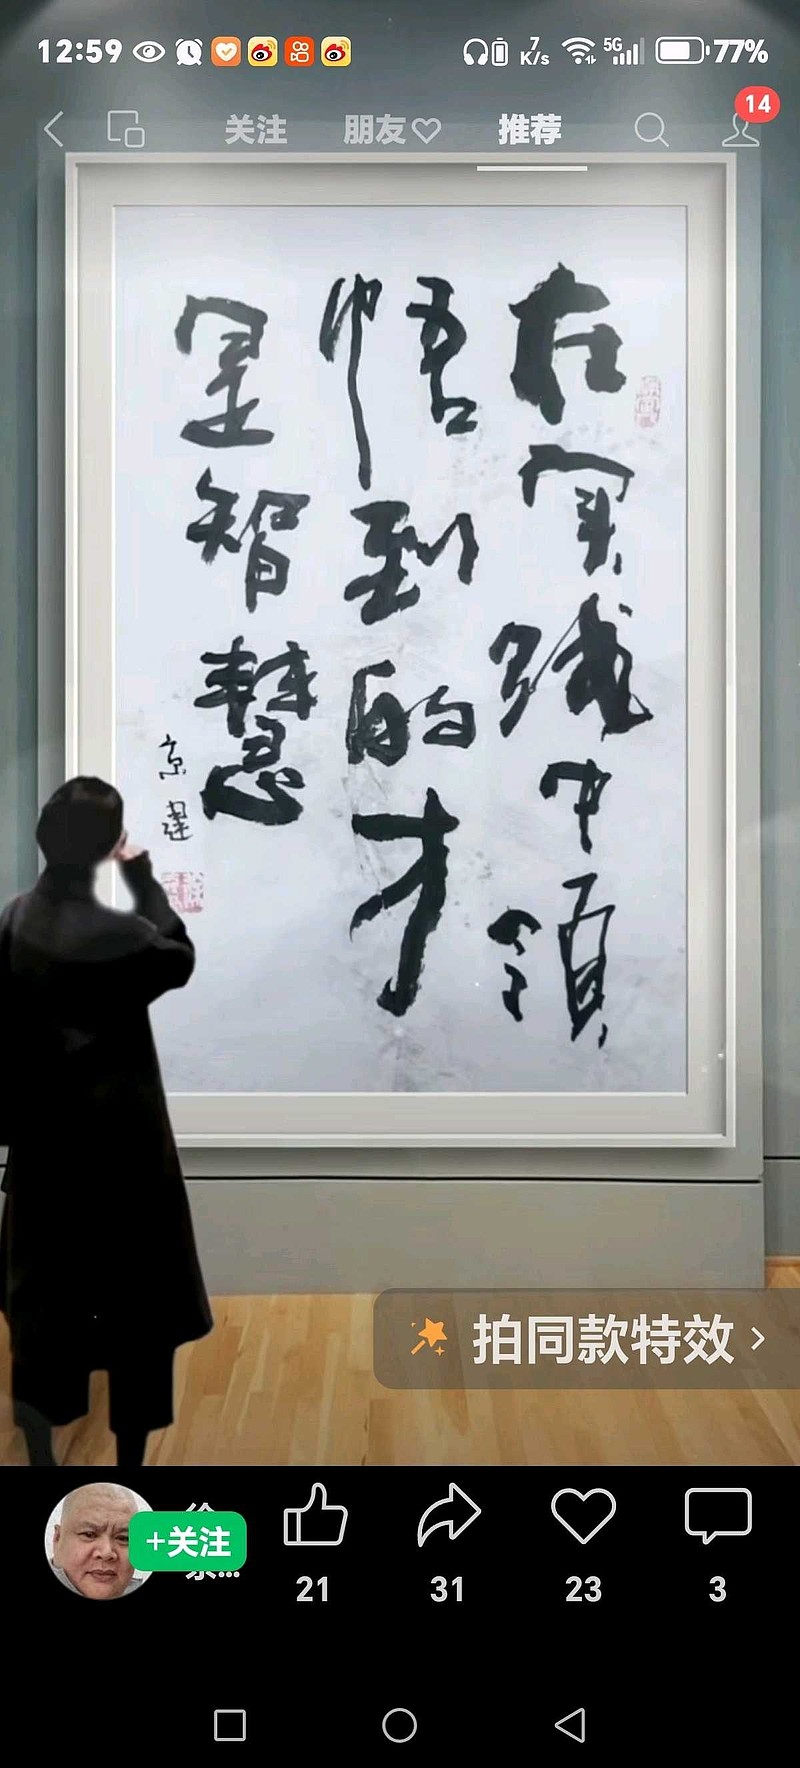 12:59
7
K/s
5G
77%
关注
朋友
推荐
14
在实践中领
悟到的才
是智慧
京建
拍同款特效
+关注
21
31
23
3